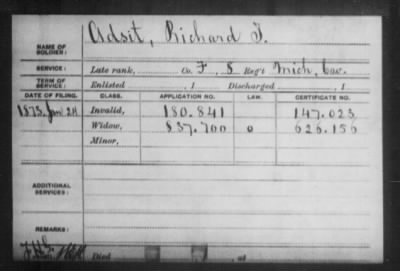 Adsit, Richard T.
NAME OF SOLDIER:
SERVICE: Late rank, Co. F, 8 Reg't Mich. Cav.
TERM OF SERVICE: Enlisted , 1 Discharged , 1
DATE OF FILING. CLASS. APPLICATION NO. LAW. CERTIFICATE NO.
1873. Jan 24 Invalid, 180.841 147.023
Widow, 837.700 0 626.156
Minor,
ADDITIONAL SERVICES:
REMARKS:
Died , at